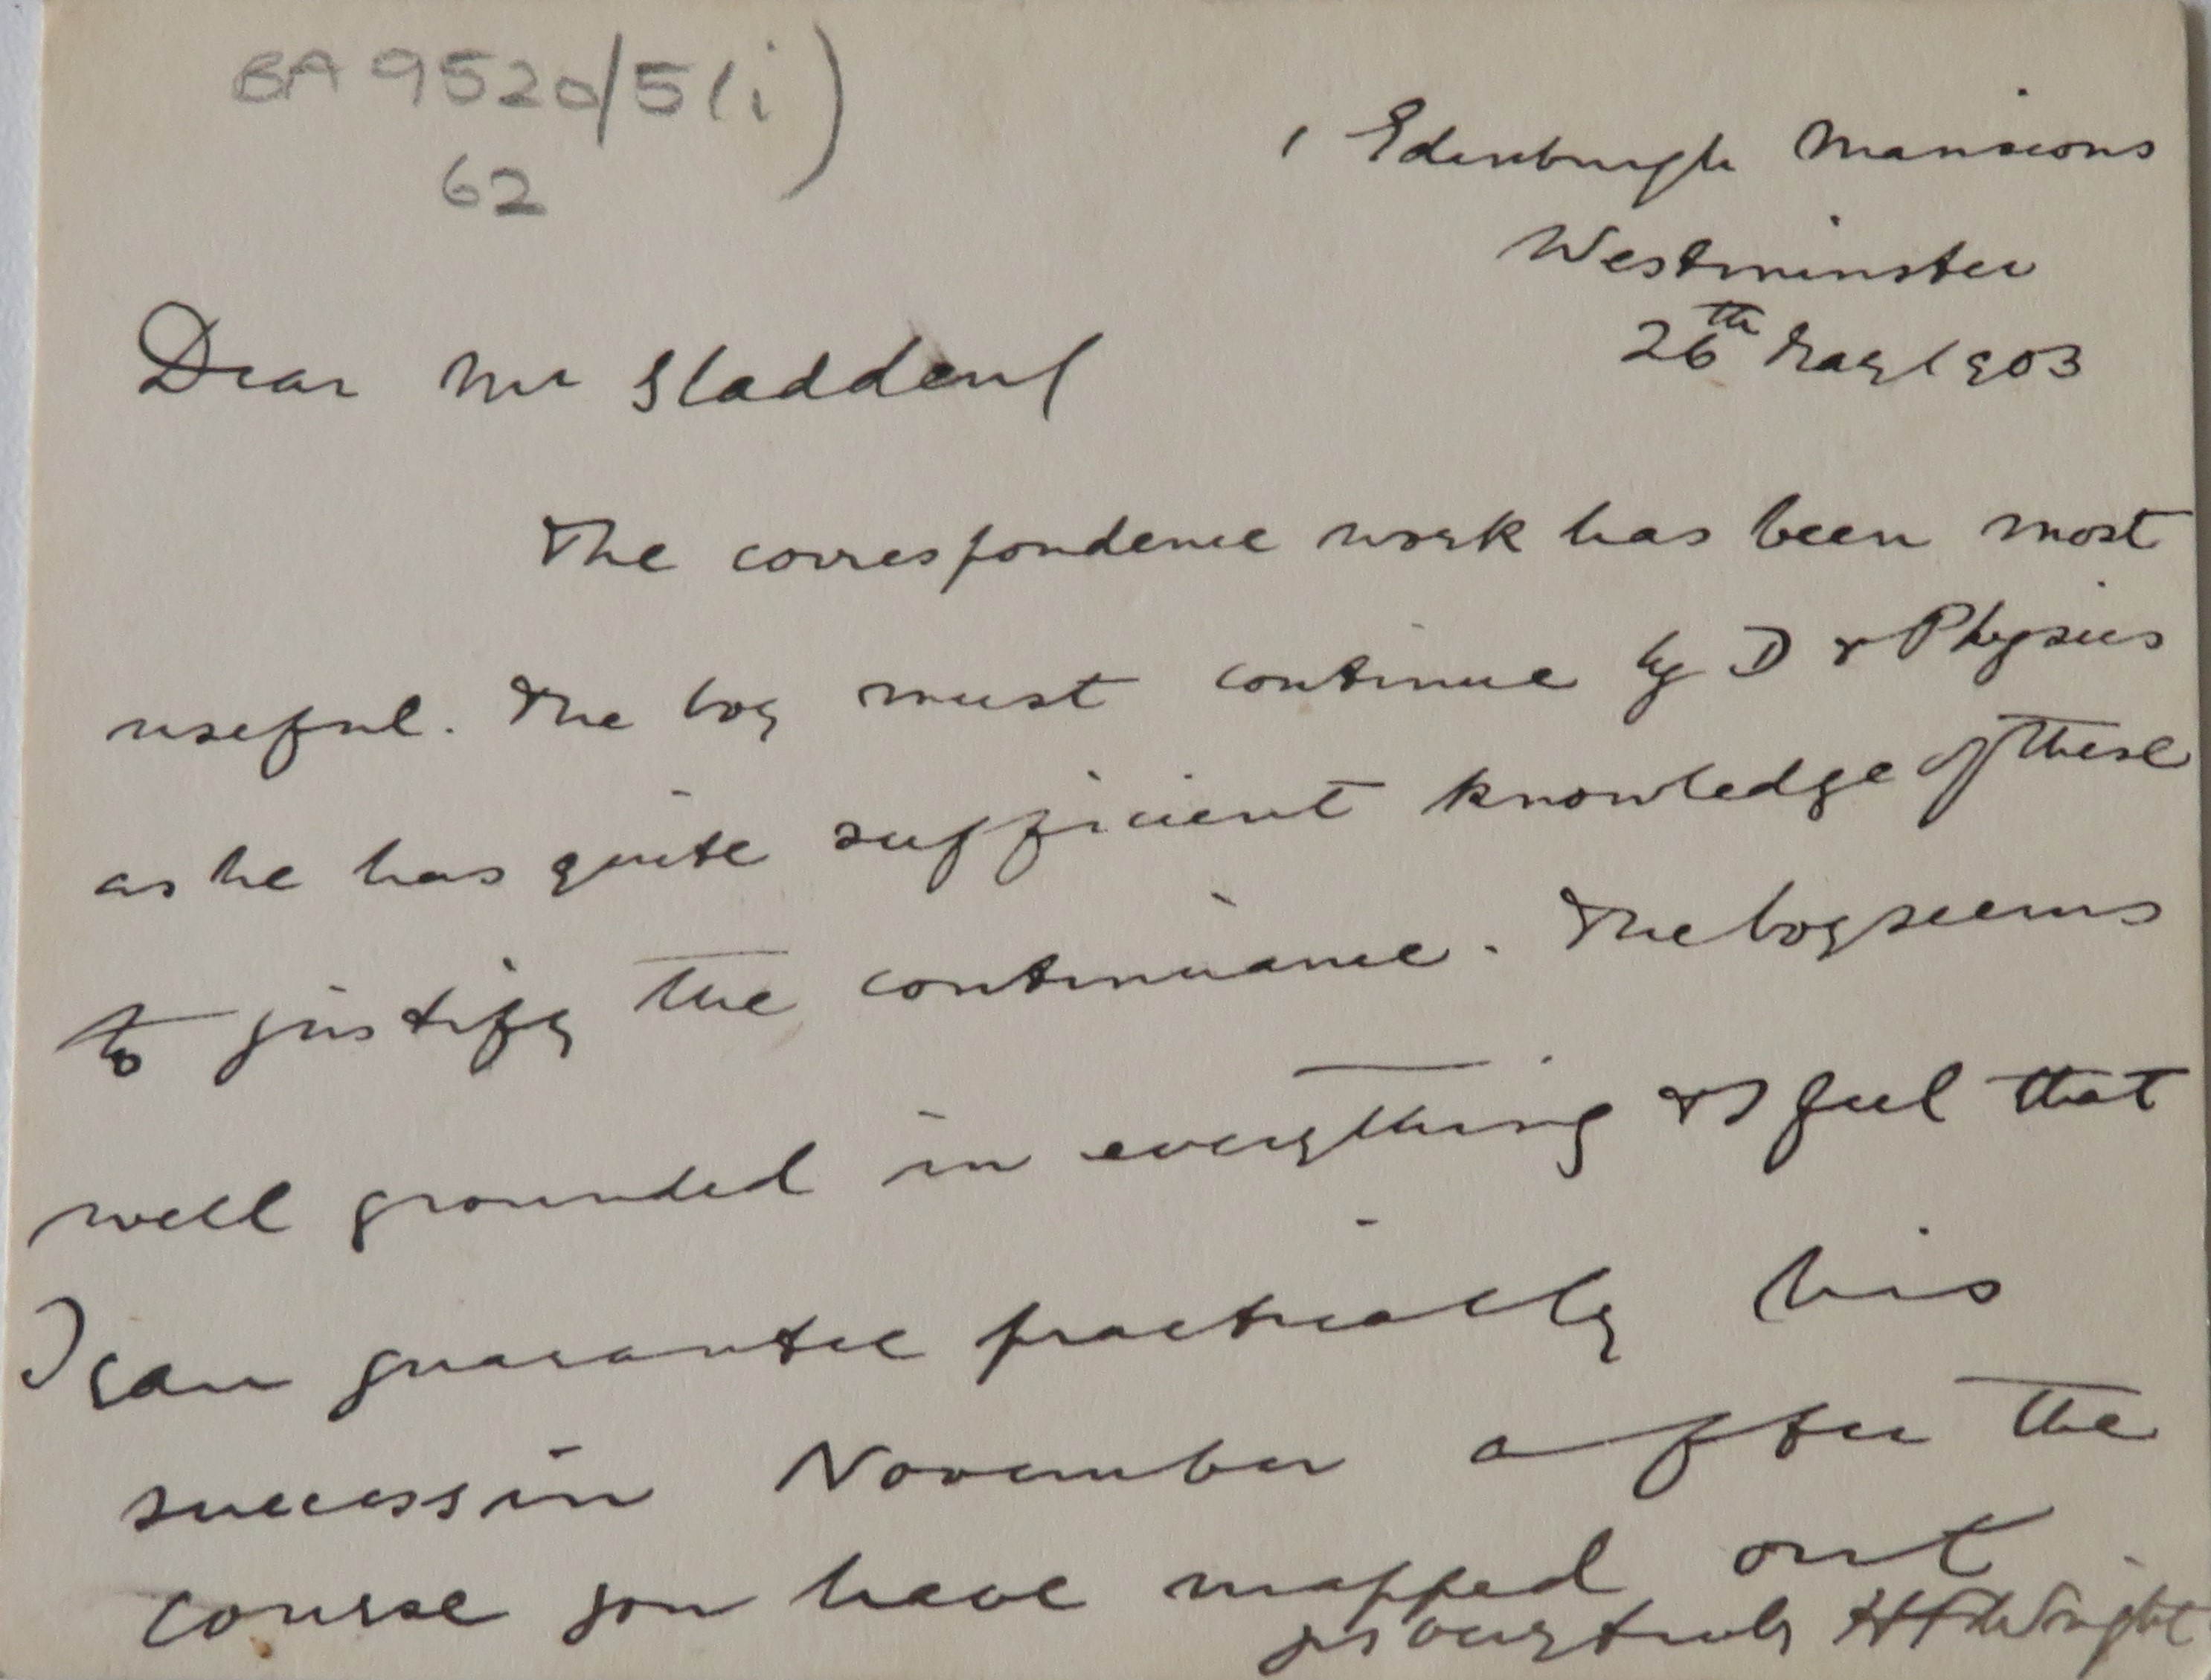 BA 9520/5(i)
62
1 Edinburgh Mansions
Westminster
26th May 1903
Dear Mr Sladden
The correspondence work has been most
useful. The boy must continue by D & Physics
as he has quite sufficient knowledge of these
to justify the continuance. The boy seems
well grounded in everything & I feel that
I can guarantee practically his
success in November after the
course you have mapped out
yrs very truly H F Wright